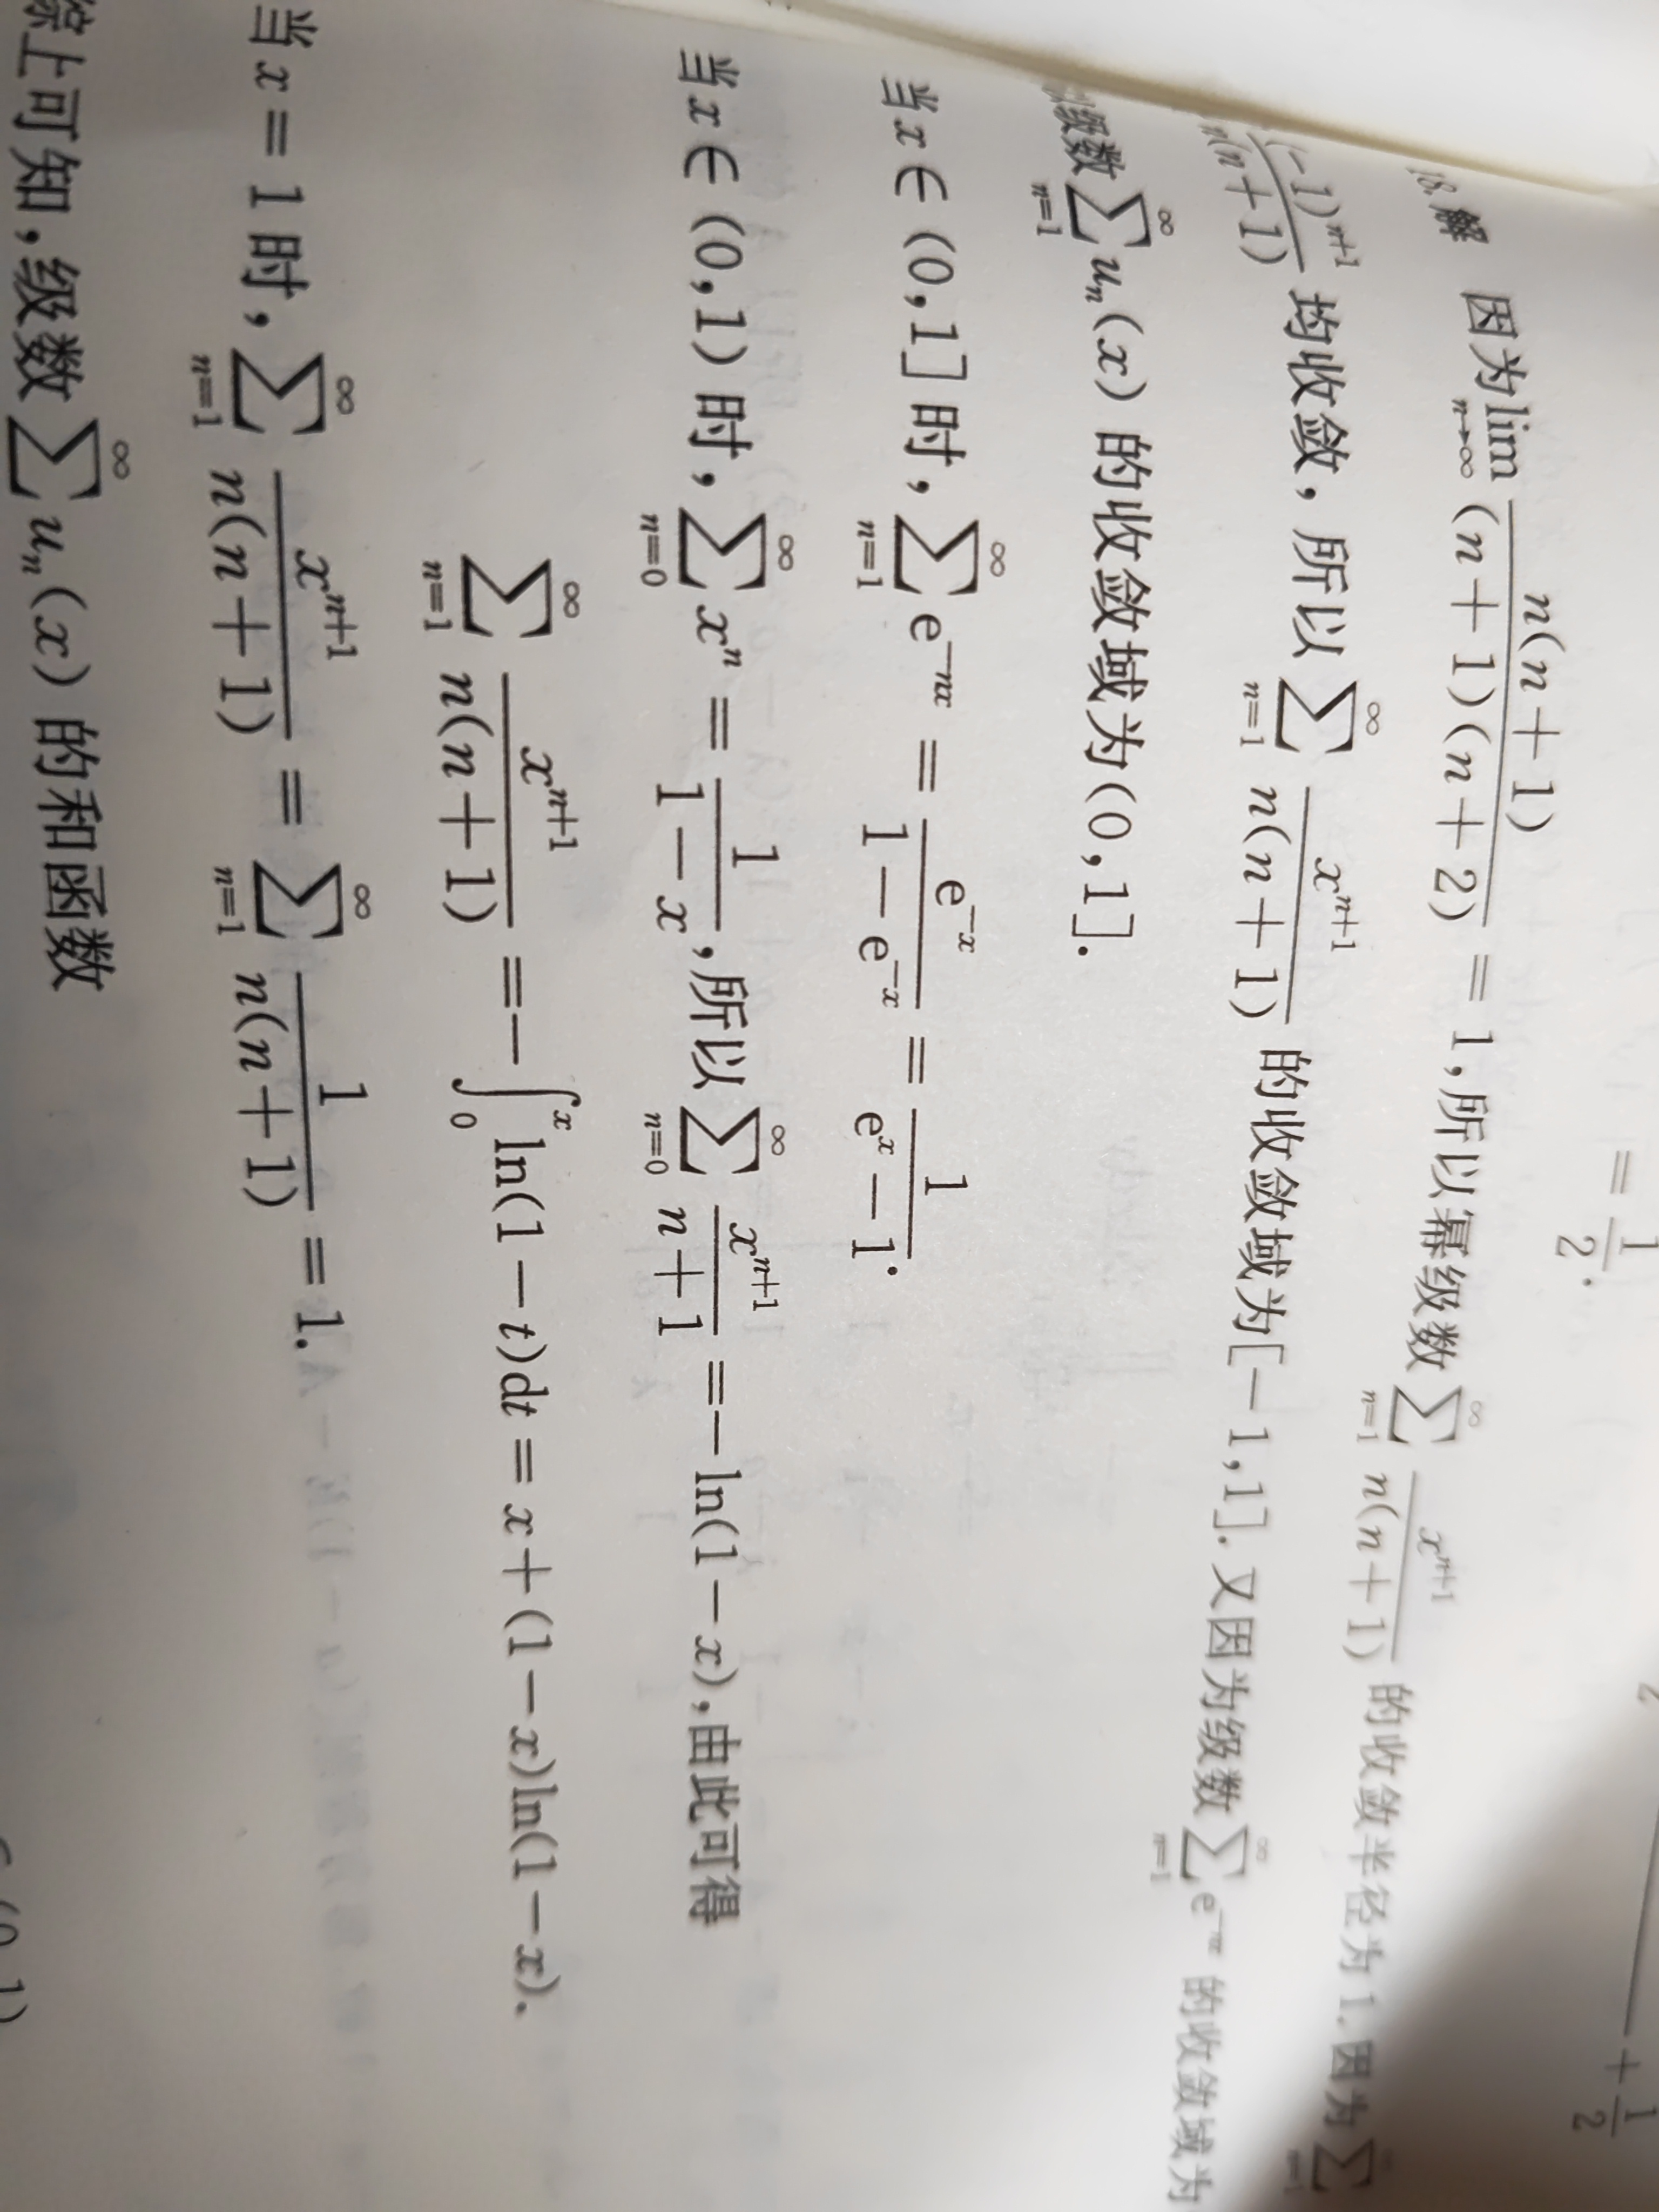 = 1/2.
+ 1/2
18. 解 因为 lim_{n→∞} n(n+1)/((n+1)(n+2)) = 1,所以幂级数 ∑_{n=1}^{∞} x^{n+1}/(n(n+1)) 的收敛半径为 1. 因为 ∑
(-1)^{n+1}/(n(n+1)) 均收敛, 所以 ∑_{n=1}^{∞} x^{n+1}/(n(n+1)) 的收敛域为[-1,1]. 又因为级数 ∑_{n=1}^{∞} e^{-nx} 的收敛域为
级数 ∑_{n=1}^{∞} u_n(x) 的收敛域为(0,1].
当 x ∈ (0,1] 时, ∑_{n=1}^{∞} e^{-nx} = e^{-x}/(1-e^{-x}) = 1/(e^x-1).
当 x ∈ (0,1) 时, ∑_{n=0}^{∞} x^n = 1/(1-x),所以 ∑_{n=0}^{∞} x^{n+1}/(n+1) =-ln(1-x),由此可得
∑_{n=1}^{∞} x^{n+1}/(n(n+1)) =-∫_0^x ln(1-t)dt = x+(1-x)ln(1-x).
当 x = 1 时, ∑_{n=1}^{∞} x^{n+1}/(n(n+1)) = ∑_{n=1}^{∞} 1/(n(n+1)) = 1.
综上可知,级数 ∑^{∞} u_n(x) 的和函数